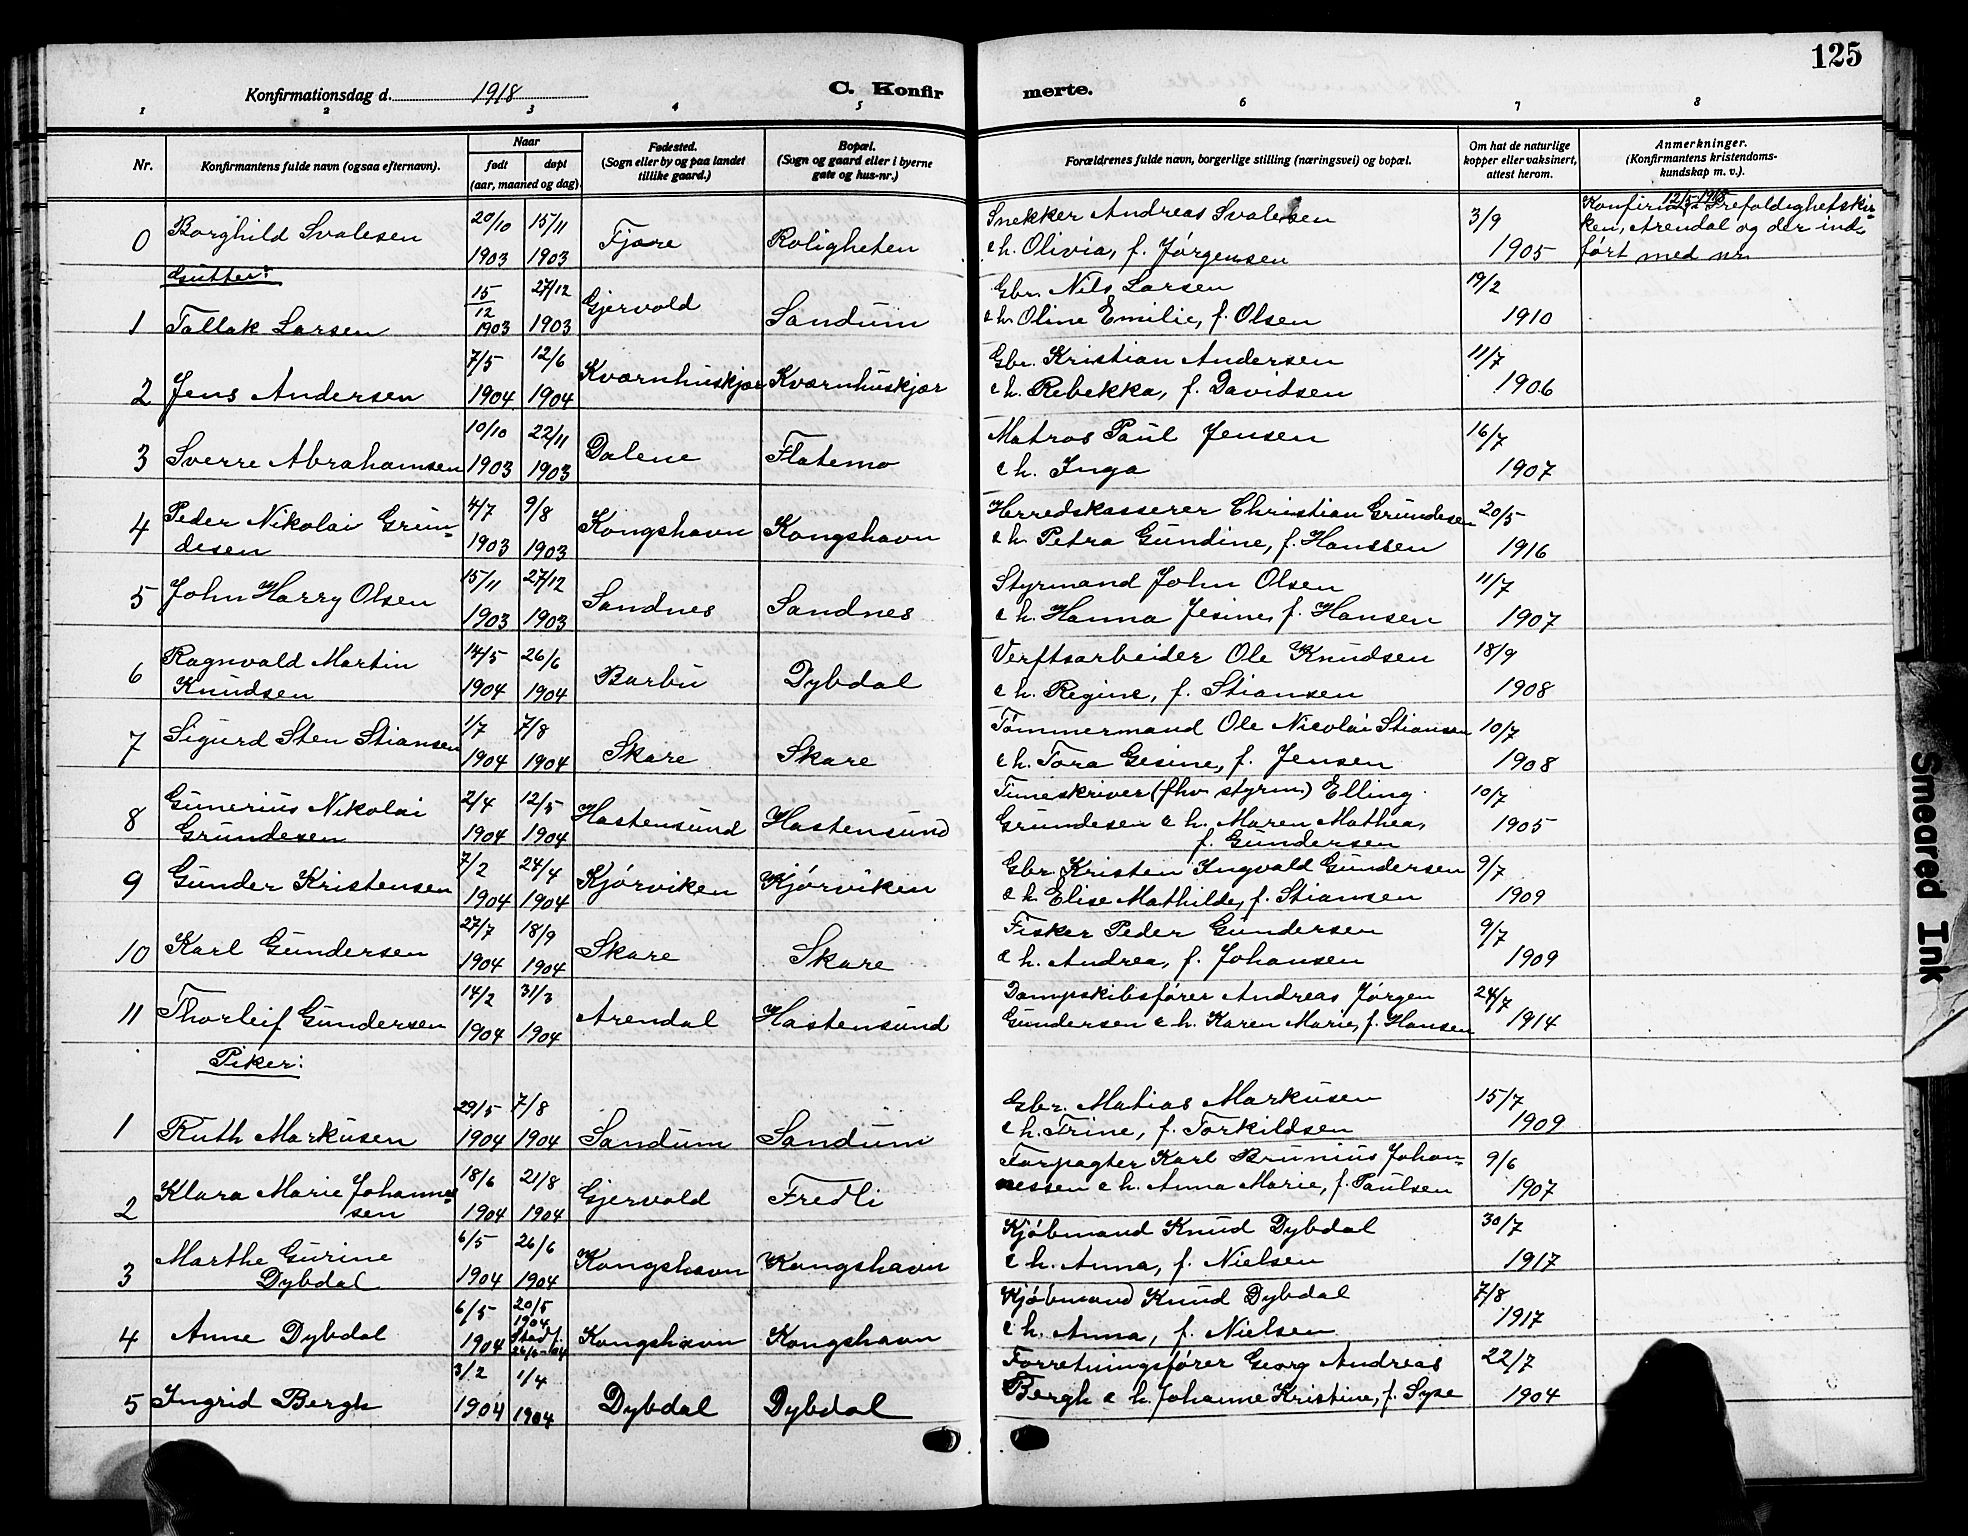 125
Konfirmationsdag d. 1918
C. Konfir merte.
1 2 3 4 5 6 7 8
Nr.
Konfirmantens fulde navn (ogsaa efternavn).
Naar
født døpt
(aar, maaned og dag)
Fødested.
(Sogn eller by og paa landet
tillike gaard.)
Bopæl.
(Sogn og gaard eller i byerne
gate og hus-nr.)
Forældrenes fulde navn, borgerlige stilling (næringsvei) og bopæl.
Om hat de naturlige
kopper eller vaksinert,
attest herom.
Anmerkninger.
(Konfirmantens kristendoms-
kundskap m. v.).
0 Borghild Svalesen 20/10 1903 15/11 1903 Fjære Roligheten
Snekker Andreas Svalesen
& h. Olivia, f. Jørgensen
3/9 1905
12/5 1918
Konfirm. i Trefoldighetskir-
ken, Arendal og der ind-
ført med nr.
Gutter:
1 Tallak Larsen 15/12 1903 27/12 1903 Gjervold Sandum
Gbr. Nils Larsen
& h. Oline Emilie, f. Olsen
19/2 1910
2 Jens Andersen 7/5 1904 12/6 1904 Kvarnhuskjær Kvarnhuskjær
Gbr. Kristian Andersen
& h. Rebekka, f. Davidsen
11/7 1906
3 Sverre Abrahamsen 10/10 1903 22/11 1903 Dalene Flatemo
Matros Paul Jensen
& h. Inga
16/7 1907
4 Peder Nikolai Grun-
desen 4/7 1903 9/8 1903 Kongshavn Kongshavn
Herredskasserer Christian Grundesen
& h. Petra Gundine, f. Hanssen
20/5 1916
5 John Harry Olsen 15/11 1903 27/12 1903 Sandnes Sandnes
Styrmand John Olsen
& h. Hanna Jesine, f. Hansen
11/7 1907
6 Ragnvald Martin
Knudsen 14/5 1904 26/6 1904 Barbu Dybdal
Verftsarbeider Ole Knudsen
& h. Regine, f. Stiansen
18/9 1908
7 Sigurd Sten Stiansen 1/7 1904 7/8 1904 Skare Skare
Tømmermand Ole Nicolai Stiansen
& h. Tora Gesine, f. Jensen
10/7 1908
8 Gunerius Nikolai
Grundesen 2/4 1904 12/5 1904 Hastensund Hastensund
Timeskriver (fhv. styrm.) Elling
Grundesen & h. Maren Mathea,
f. Gundersen
10/7 1905
9 Gunder Kristensen 7/2 1904 24/4 1904 Kjørviken Kjørviken
Gbr. Kristen Ingvald Gundersen
& h. Elise Mathilde, f. Stiansen
9/7 1909
10 Karl Gundersen 27/7 1904 18/9 1904 Skare Skare
Fisker Peder Gundersen
& h. Andrea, f. Johansen
9/7 1909
11 Thorleif Gundersen 14/2 1904 31/3 1904 Arendal Hastensund
Dampskibsfører Andreas Jørgen
Gundersen & h. Karen Marie, f. Hansen
24/7 1914
Piker:
1 Ruth Markusen 29/5 1904 7/8 1904 Sandum Sandum
Gbr. Matias Markusen
& h. Trine, f. Torkildsen
15/7 1909
2 Klara Marie Johanne-
sen 18/6 1904 21/8 1904 Gjervold Fredli
Forpagter Karl Brunius Johan-
nessen & h. Anna Marie, f. Paulsen
9/6 1907
3 Marthe Gurine
Dybdal 6/5 1904 26/6 1904 Kongshavn Kongshavn
Kjøbmand Knud Dybdal
& h. Anna, f. Nielsen
30/7 1917
4 Anne Dybdal 6/5 1904 20/5 1904 Stadf. 26/6-04 Kongshavn Kongshavn
Kjøbmand Knud Dybdal
& h. Anna, f. Nielsen
7/8 1917
5 Ingrid Bergh 3/2 1904 1/4 1904 Dybdal Dybdal
Forretningsfører Georg Andreas
Bergh & h. Johanne Kristine, f. Syse
22/7 1904
Smeared Ink